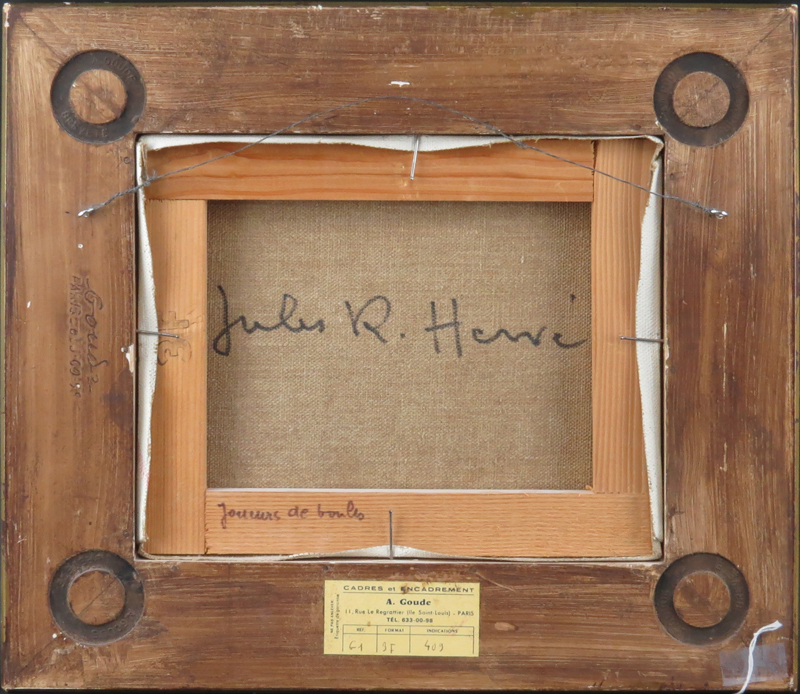 Jules R. Hervé
3F
Goude
Joueurs de boules
CADRES et ENCADREMENT
A. Goude
11, Rue Le Regrattier (Ile Saint-Louis) - PARIS
TÉL. 633-00-98
RÉF. FORMAT INDICATIONS
61 3F 409